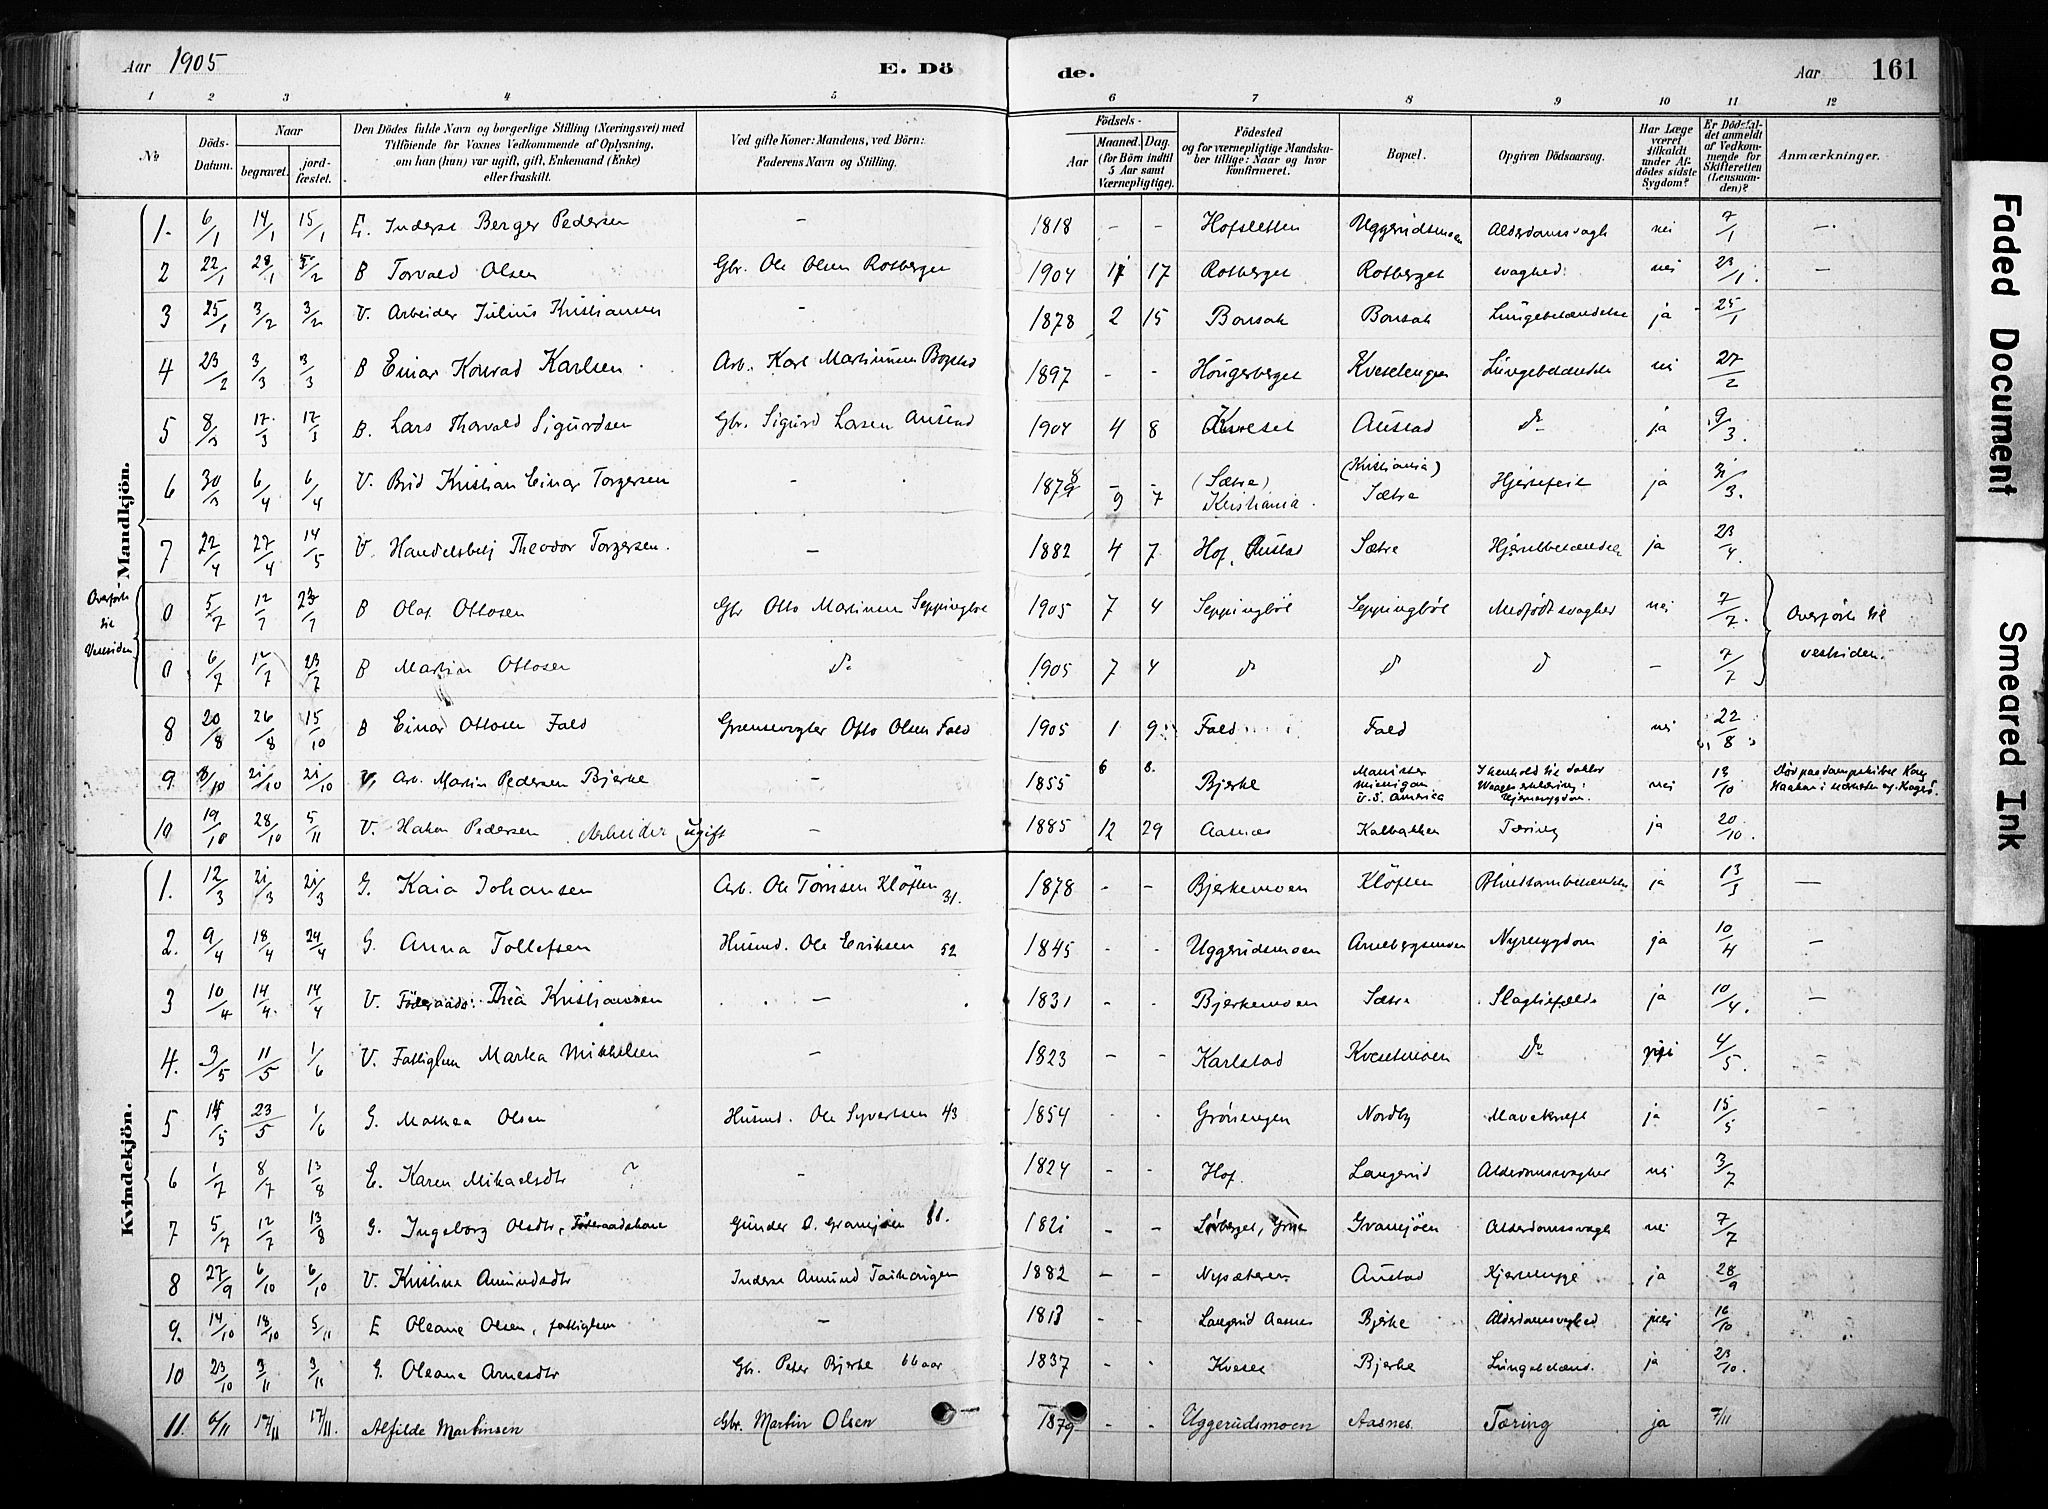 Aar 1905 E. Dö de. Aar 161
1 2 3 4 5 6 7 8 9 10 11 12
No Döds-Datum. Naar begravet. jord-fæstet. Den Dödes fulde Navn og borgerlige Stilling (Næringsvei) med Tilföiende for Voxnes Vedkommende af Oplysning, om han (hun) var ugift, gift, Enkemand (Enke) eller fraskilt. Ved gifte Koner: Mandens, ved Börn: Faderens Navn og Stilling. Födsels- Aar Maaned. Dag. (for Börn indtil 5 Aar samt Værnepligtige). Födested og for værnepligtige Mandskaber tillige: Naar og hvor konfirmeret. Bopæl. Opgiven Dödsaarsag. Har Læge været tilkaldt under Afdödes sidste Sygdom? Er Dödsfaldet anmeldt af Vedkommende for Skifteretten (Lensmanden)? Anmærkninger.
Mandkjön.
1. 6/1 14/1 15/1 E. Inderst Berger Pedersen – 1818 – – Hofsletten Uggerudsmoen Alderdomssvagh nei 7/1 –
2 22/1 28/1 B Torvald Olsen Gbr. Ole Olsen Rotberget 1904 17 Rotberget Rotberget svaghed. nei 23/1. –
3 25/1 3/2 3/2 V. Arbeider Julius Kristiansen – 1878 2 15 Bonsak Bonsak Lungebetændelse ja 25/1
4 23/2 3/3 3/3 B Einar Konrad Karlsen Arb. Karl Martinsen Bogstad 1897 – – Hougerberget Kveselengen Lungebetændelse nei 27/2
5 8/3 17/3 17/3 B. Lars Thorvald Sigurdsen Gbr. Sigurd Larsen Austad 1904 4 8 Kveset Austad do ja 9/3.
6 30/3 6/4 6/4 V. Bud Kristian Einar Torgersen – 1878 9 7 (Sætre) Kristiania. (Kristiania) Sætre Hjertefeil ja 31/3.
7 22/4 27/4 14/5 V. Handelsbetj Theodor Torgersen. – 1882 4 7 Hof, Austad Sætre Hjernebetændelse ja 23/4.
Overført til Vestsiden
0 5/7 12/7 23/7 B Olaf Ottosen Gbr Otto Martinsen Seppingbøl 1905 7 4 Seppingböl Seppingböl Medfödt svaghed nei 7/7. Overført til vestsiden.
0 6/7 12/7 23/7 B Martin Ottosen do 1905 7 4 do do do – 7/7
8 20/8 26/8 15/10 B Einar Ottosen Fald Grænsevogter Otto Olsen Fald 1905 1 9 Fald Fald nei 22/8
9. 21/10 21/10 V. Arb. Martin Pedersen Bjerke – 1855 6 8. Bjerke Manister Michigan U.S. America I henhold til doktor Waages erklæring: Hjernesygdom. nei 13/10 Död paa dampskibet Kong Haakon i nærheten af Kragerö.
10 19/10 28/10 5/11 V. Hakon Pedersen Arbeider ugift – 1885 12 29 Aasnæs Kalbakken Tæring ja 20/10.
Kvindekjön.
1. 12/3 21/3 21/3 G. Kaia Johansen Arb. Ole Tørrisen Kløften 31. 1878 – – Bjerkemoen Klöften Blindtarmbetændelse ja 13/3 –
2. 9/4 18/4 24/4 G. Anna Tollefsen Husmd. Ole Eriksen 52 1845 – – Uggerudsmoen Arnebergsmoen Nyresygdom ja 10/4 –
3 10/4 14/4. 14/4 V. Föderaads. Thea Kristiansen – 1831 – – Bjerkemoen Sætre Slagtilfælde ja 10/4. –
4. 3/5 11/5 1/6 V. Fattiglem Marka Mikkelsen – 1823 – – Karlstad Kvesetmoen Do nei 4/5. –
5 14/5 23/5 1/6 G. Mathea Olsen Husmd. Ole Syvertsen 43 1854 – – Grönengen Nordby Mavekræft ja 15/5 –
6 1/7 8/7 13/8 E. Karen Mikaelsdtr ? – 1824 – – Hof. Langerud Alderdomssvaghed nei 3/7
7 5/7 12/7 13/8 G. Ingeborg Olsdtr, Föderaadskone Gunder O. Gransjøen 81. 1821 – – Sörberget, Grue Gransjöen Alderdomssvagh nei 7/7
8 27/9 6/10 6/10 V. Kristine Amundsdtr Inderst Amund Taihaugen 1882 – – Nysæteren Austad Hjertesyge ja 28/9
9. 14/10 18/10 5/11 E Oleane Olsen, fattiglem – 1813 – – Langerud Aasnes Bjerke Alderdomssvaghed nei 16/10
10 23/10 3/11 3/11 G. Oleane Arnesdtr Gbr. Peter Bjerke 66 aar 1837 – – Kveset Bjerke Lungebetænd. ja 23/10.
11. 6/11 17/11 17/11. Alfilde Martinsen Gbr. Martin Olsen 1879 – – Uggerudsmoen Aasnes. Tæring ja 7/11
Faded Document
Smeared Ink